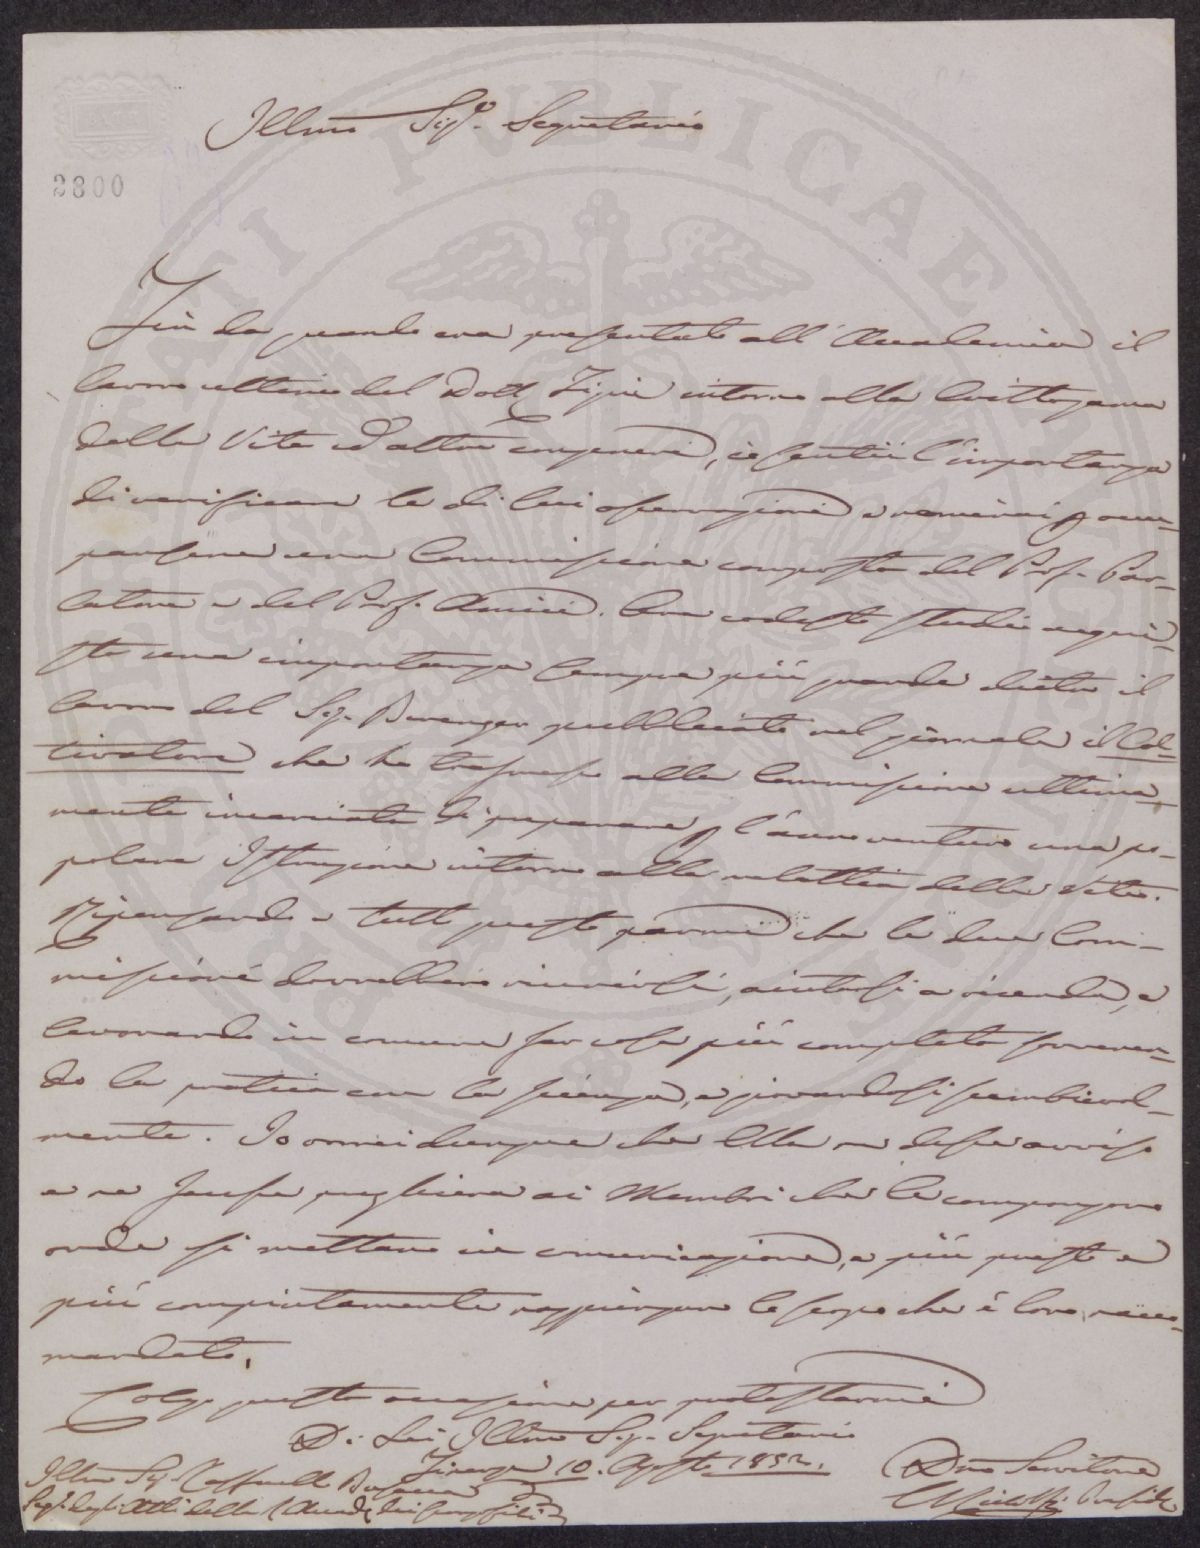 2800
Illmo Sigr. Segretario
Fin da quando era presentato all'Accademia il
lavoro ultimo del Dott. Tigri intorno alla Crittogama
della Vite ed altri congeneri, si sentii l'importanza
di verificare le di lui osservazioni e nominai p. occu-
parsene una Commissione composta del Prof. Par-
latore e del Prof. Amici. Ora codesto studio acqui-
sta una importanza sempre più grande dietro il
lavoro del Sig. Berenger pubblicato nel giornale il Col-
tivatore che ho trasmesso alla Commissione ultima-
mente incaricata di preparare p. l'anno venturo una po-
polare Istruzione intorno alla malattia della Vite.
Ripensando a tutto questo parmi che le due Com-
missioni dovrebbero riunirsi, aiutarsi a vicenda, e
lavorando in comune far cosa più completa sovvenen-
do la pratica con la scienza, e giovandosi scambievol-
mente. Io amerei dunque che Ella ne desse avviso
e ne facesse preghiera ai Membri che le compongono
onde si mettano in comunicazione, e più presto e
più compiutamente raggiungano lo scopo che è loro racco-
mandato.
Colgo questa occasione per protestarmi
Di Lei Illmo Sig. Segretario
Firenze 10. Agosto 1852.
Illmo Sig. Raffaello Busacca
Segr. degli Atti della R. Accad. dei Georgofili
Dmo Servitore
Presidte
PROSPERITATI PUBLICAE AUGENDAE